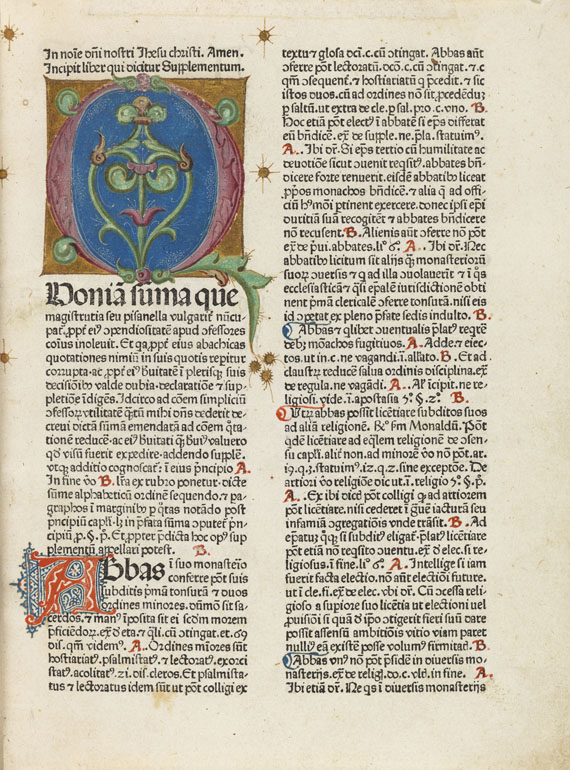 In noīe dñi nostri Ihesu christi. Amen.
Incipit liber qui dicitur Supplementum.
QUoniā sūma que
magistrutia seu pisanella vulgarit̉ nūcu-
pat᷑. ꝓpt̉ ei⁹ ꝯpendiositatē apud ꝯfessores
cōīus inoleuit. Et qꝛ ꝓpt̉ eius abachicas
quotationes nimiū in suis quotis reꝑitur
corrupta. ac ꝓpt̉ ei⁹ bꝛuitatē ī pleriſqꝫ suis
decisiōībꝰ valde dubia. declaratiōe ⁊ sup-
pletiōe īdiges. Idcirco ad cōem simplicium
ꝯfessoꝝ vtilitatē q̄tū mihi dñs dederit de-
creui dictā sūmā emendatā ad cōem q̄ta-
tionē reducē. ac ei⁹ bꝛuitati qꝫ bꝛui⁹ valuero
qd̓ visū fuerit expedire. addendo supplē.
vtqꝫ additio cognoscat᷑. ī eius pͥncipio A.
In fine vō B. lr̄a ex rubro ponetur. dicte
sūme alphabeticū ordinē sequendo. ⁊ ꝑa-
graphos ī marginibꝰ ꝑ q̄tas notādo post
pͥncipiū capl̓i. lꝫ in p̄fata sūma oputer pͥn-
cipiū. ꝑ. §. p̄. Et ꝓpter p̄dicta hoc opꝰ sup
plementū appellari potest. B.
ABbas ī suo monastēo
conferre pōt suis
subditis pͥmā tonsurā ⁊ duos
ordines minores. dūmō sit sa-
cerdos. ⁊ manꝰ īposita sit ei sedꝫm morem
p̄ficiēdoꝝ. ex̄ d̓ eta. ⁊ q̄li. cū ꝯtingat. et. 69
dis. qm̄ videmꝰ. A.. Ordines mīores sūt
hostiariatꝰ. psalmistatꝰ. ⁊ lectoratꝰ. exorci
statꝰ. acolitatꝰ. 21. dis. cleros. Et psalmista-
tus ⁊ lectoratus idem sūt ut pōt colligi ex
textu ⁊ glosa dc̄i. c. cū ꝯtingat. Abbas aūt
ꝯferre pōt lectoratū. dc̄o. c. cū ꝯtingat. ⁊. c
qm̄ ꝯsequent̉. ⁊ hostiariatū q̄ p̄cedit. ⁊ sic
istos duos. cū ad ordines nō sit ꝓcedēdūꝫ
ꝑ saltū. ut extra de cle. ꝑ sal. pro. c. vno. B.
Hoc etiā pōt elect⁹ ī abbatē si ep̄s differat
eū bn̄dicē. ex̄ de supple. ne. p̄la. statuimꝰ.
A.. Ibi dr̄. Si ep̄s tertio cū humilitate ac
deuotiōe sicut ꝯuenit reqͥsitꝰ. abbates bn̄-
dicere forte renuerit. eisdē abbatibꝰ liceat
ꝓpͥos monachos bn̄dicē. ⁊ alia q̄ ad offi-
ciū hꝰmōi ptinent exercere. donec ipsi epi
duritiā suā recogitēt ⁊ abbates bn̄dicere
nō recusent. B. Alienis aūt ꝯferre nō pōt
ex̄ de pͥui. abbates. li⁰ 6. A.. Ibi dr̄. Nec
abbatibꝰ licitum sit alijs q̄ꝫ monasteriorū
suoꝝ ꝯuersis ⁊ q̄ ad illa ꝯuolauerīt ⁊ ī q̄s
ecclesiasticā ⁊ q̄si ep̄alē iurisdictionē obti
nent pͥmā clericalē ꝯferre tonsurā. nisi eis
id ꝯpetat ex pleno p̄fate sedis indulto. B.
Abbas ⁊ qlibet ꝯuentualis p̄latꝰ reqͥrē
debꝫ mōachos fugitiuos. A.. Adde. ⁊ eiec-
tos. ut in. c. ne vagandi. ī. allato. B. Et ad
claustꝝ reducē salua ordinis disciplina. ex̄
de regula. ne vagādi. A.. Al̓ īcipit. ne re-
ligiosi. vide. ī. apostasia 5⁰. §. 2⁰. B.
Utrū abbas possit licētiare subditos suos
ad aliā religionē. Rͦ. fm̄ Monaldū. Pōt
qdē licētiare ad eq̄lem religionē de ꝯsen-
su capl̓i. alit̉ non. ad minorē vo nō pōt. ar.
19. q. 3. statuimꝰ. 12. q. 2. sine exceptōe. De
artiori vō religiōe dic ut. ī. religio 5⁰. §. p̄.
A.. Ex ibi dictꝰ pōt colligi q̄ ad artiorem
pōt licētiare. nisi cederet ī ġuē iacturā seu
infamiā ꝯgregatiōis vnde trāsit. B. Ad
eꝑatuꝝ qꝫ. si subditꝰ eligat᷑. p̄latꝰ licētiare
pōt etiā nō reqͥsito ꝯuentu. ex̄ d̓ elec. si re-
ligiosus. ī fine. li⁰ 6. A. Intellige si iam
fuerit facta electio. nō aūt electiōi future.
ut ī cle. fi. ex̄ de elec. vbi dr̄. Cū ꝯcessa reli-
gioso a supiore suo licētia ut electioni vel
ꝓuisiōi si quā d̓ ip̄o ꝯtigerit fieri suū date
possit assensū ambitiōis vitio viam paret
nulliꝰ eā existē posse volum⁹ firmitatꝭ. B.
Abbas vnꝰ nō pōt p̄sidē in diuersis mo-
nasterijs. ex̄ de religi. do. c. vlt̉. in fine. A.
Ibi etiā dr̄. Ne qͥs ī diuersis monasterijs